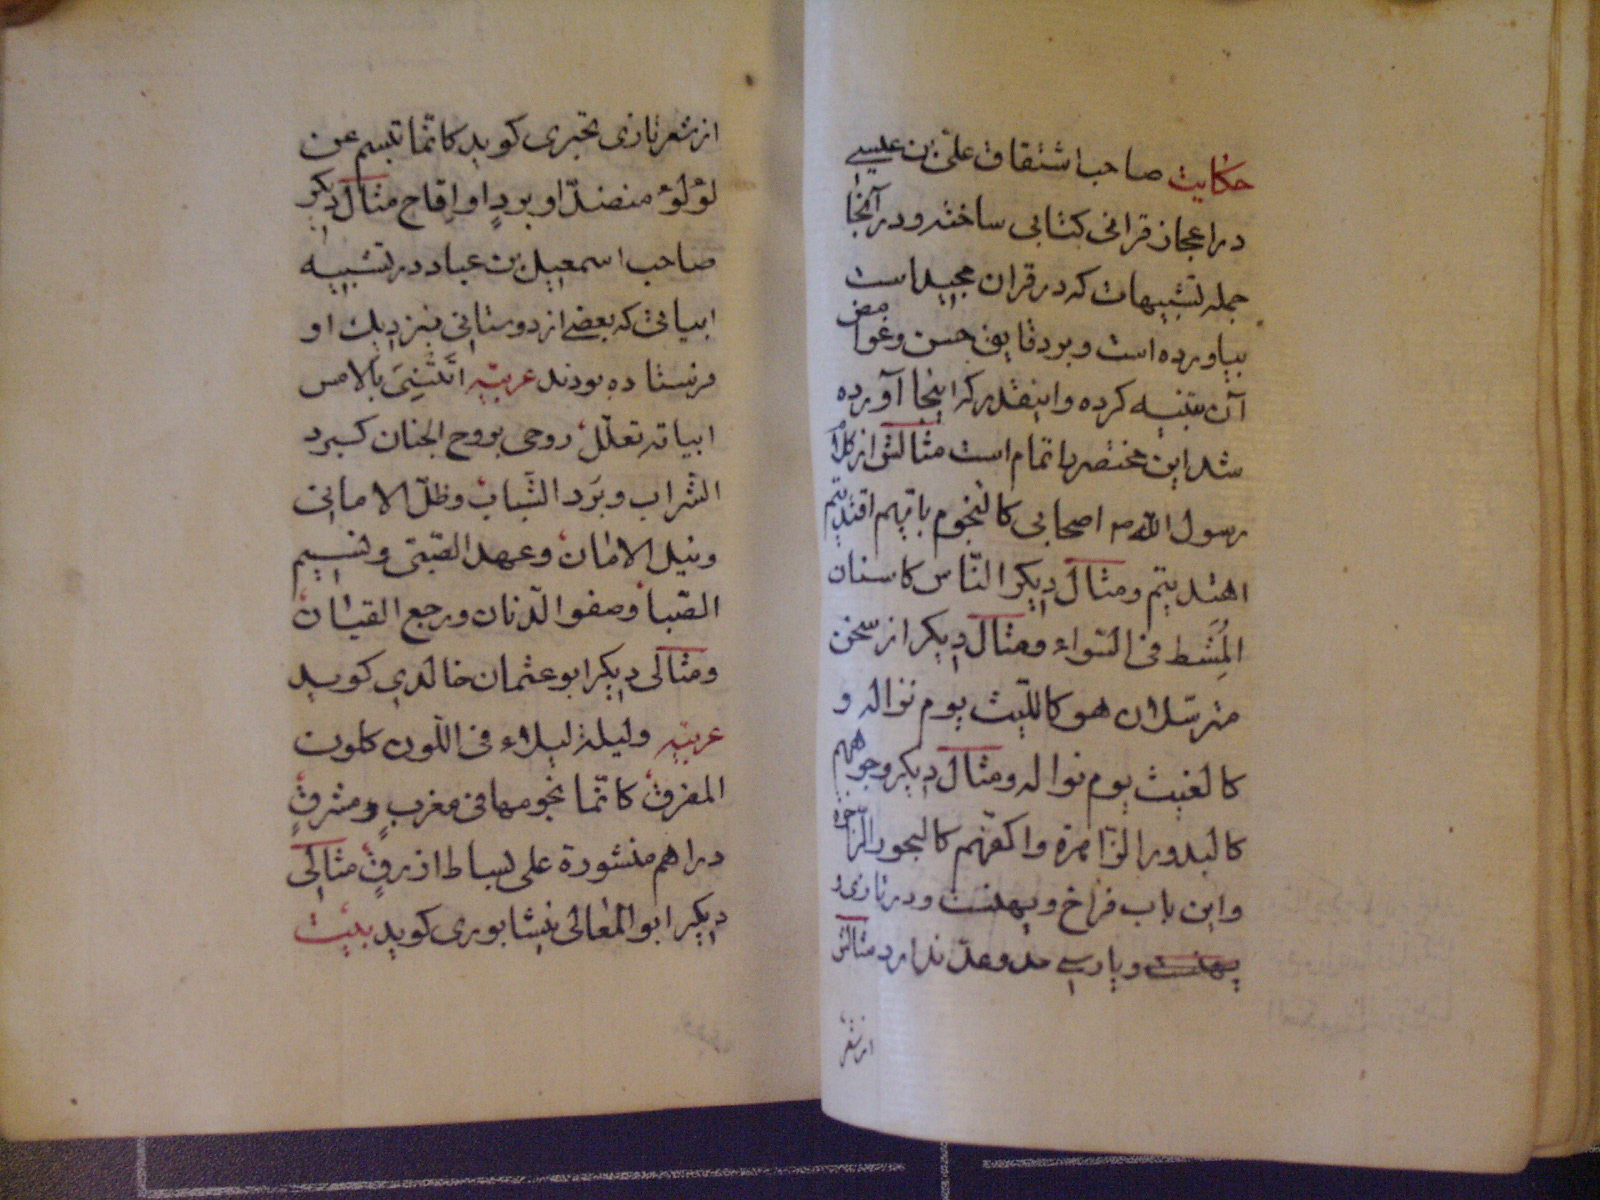 حکایت صاحب اشتقاق علی بن عیسی
در اعجاز قرانی کتابی ساخته و در آنجا
جمله تشبیهات که در قران مجید است
بیاورده است و بر دقایق حسن و غوامض
آن تنبیه کرده و اینقدر که اینجا آورده
شد این مختصر را تمام است مثالش از کلام
رسول الله ص اصحابی کالنجوم بایّهم اقتدیتم
اهتدیتم و مثال دیکر النّاس کاسنان
المُشط فی السّواء و مثال دیکر از سخن
مترسّلان هو کاللّیث یوم نزاله و
کالغیث یوم نواله و مثال دیکر وجوههم
کالبدور الزّاهرة و اکفّهم کالبحور الزّاخرة
و این باب فراخ و پهنست و در تازی و
پهنست و پارسی حد و عدّ ندارد مثالش
از شعر
از شعر تازی بحتری کوید کانّما تبسم عن
لؤلؤ منضدّ او بردٍ او اقاح مثال دیکر
صاحب اسمعیل بن عباد در تشبیه
ابیاتی که بعضی از دوستانی بنزدیک او
فرستاده بودند عربیّه اتَتْنِیَ بالامس
ابیاته تعلّل روحی بروح الجنان کبرد
الشّراب و بَرد الشَّباب و ظلّ الامانی
و نیل الامان و عهد الصّبی و نسیم
الصّبا و صفو الدّنان و رجع القیان
و مثالی دیکر ابو عثمان خالدی کوید
عربیّه و لیلة لیلاء فی اللّون کلون
المفرق کانّما نجومها فی مغرب و مشرقٍ
دراهم منثورة علی بساط ازرقٍ مثالی
دیکر ابو المعالی نیشابوری کوید بیت